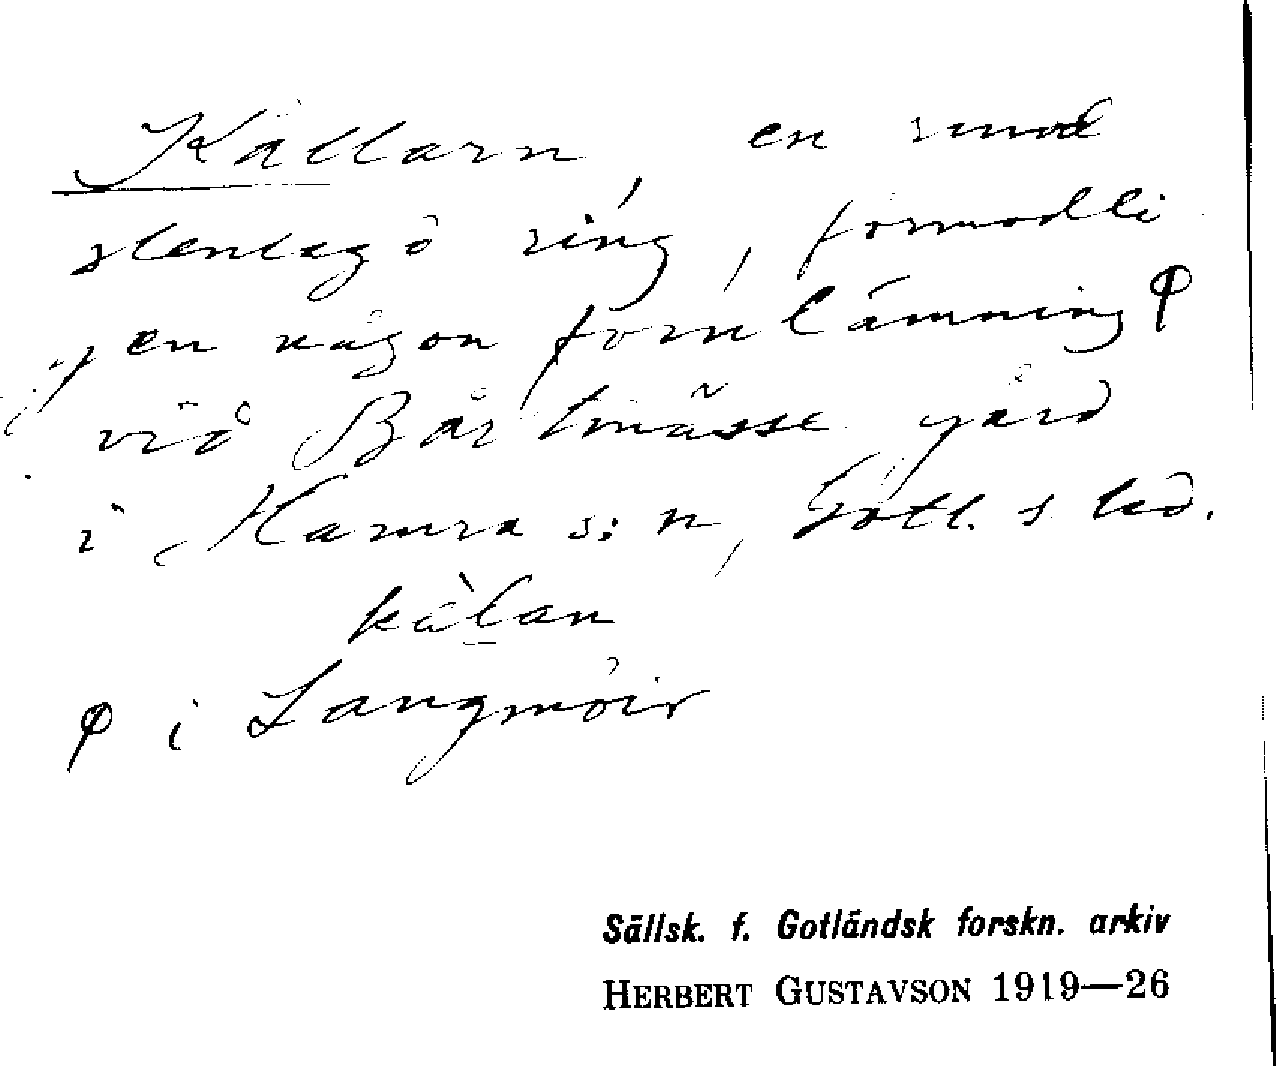 Källarn, en rund
stenlagd ring, förmodli
gen någon fornlämning φ
vid Bårtmässe gård
i Hamra s:n, Gotl. s hd.
kälan
φ i Langmöir
Sällsk. f. Gotländsk forskn. arkiv
HERBERT GUSTAVSON 1919—26